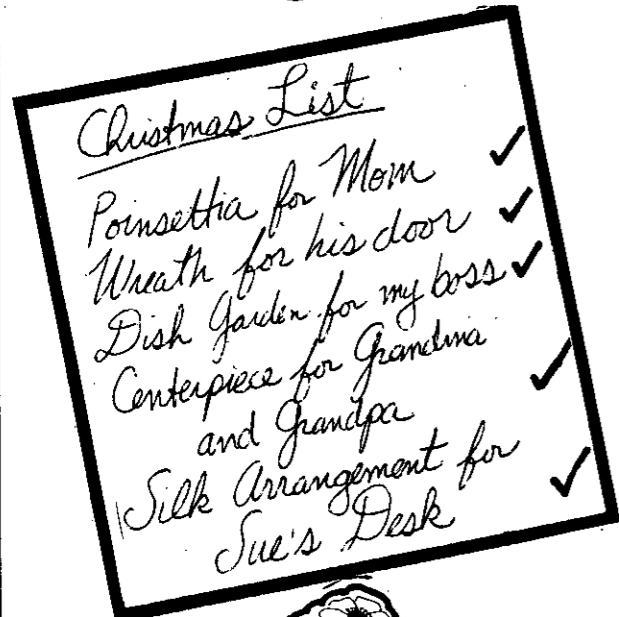 Christmas List
Poinsettia for Mom ✓
Wreath for his door ✓
Dish Garden for my boss ✓
Centerpiece for Grandma
and Grandpa ✓
Silk Arrangement for
Sue's Desk ✓